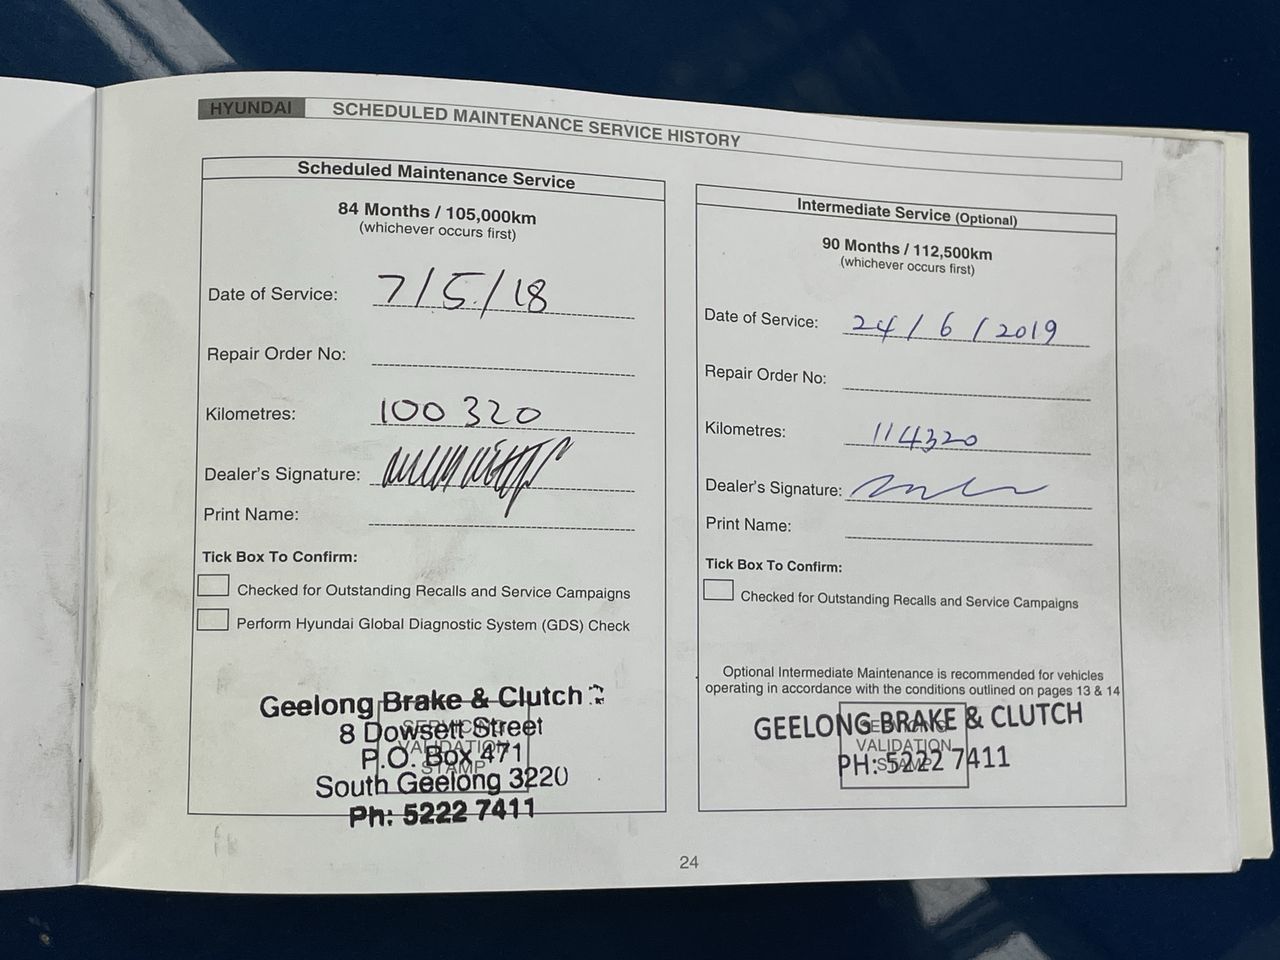 HYUNDAI SCHEDULED MAINTENANCE SERVICE HISTORY
Scheduled Maintenance Service
84 Months / 105,000km
(whichever occurs first)
Date of Service: 7/5/18
Repair Order No:
Kilometres: 100 320
Dealer's Signature:
Print Name:
Tick Box To Confirm:
Checked for Outstanding Recalls and Service Campaigns
Perform Hyundai Global Diagnostic System (GDS) Check
SERVICING
VALIDATION
STAMP
Geelong Brake & Clutch
8 Dowsett Street
P.O. Box 471
South Geelong 3220
Ph: 5222 7411
Intermediate Service (Optional)
90 Months / 112,500km
(whichever occurs first)
Date of Service: 24/6/2019
Repair Order No:
Kilometres: 114320
Dealer's Signature:
Print Name:
Tick Box To Confirm:
Checked for Outstanding Recalls and Service Campaigns
Optional Intermediate Maintenance is recommended for vehicles
operating in accordance with the conditions outlined on pages 13 & 14
SERVICING
VALIDATION
STAMP
GEELONG BRAKE & CLUTCH
PH: 5222 7411
24